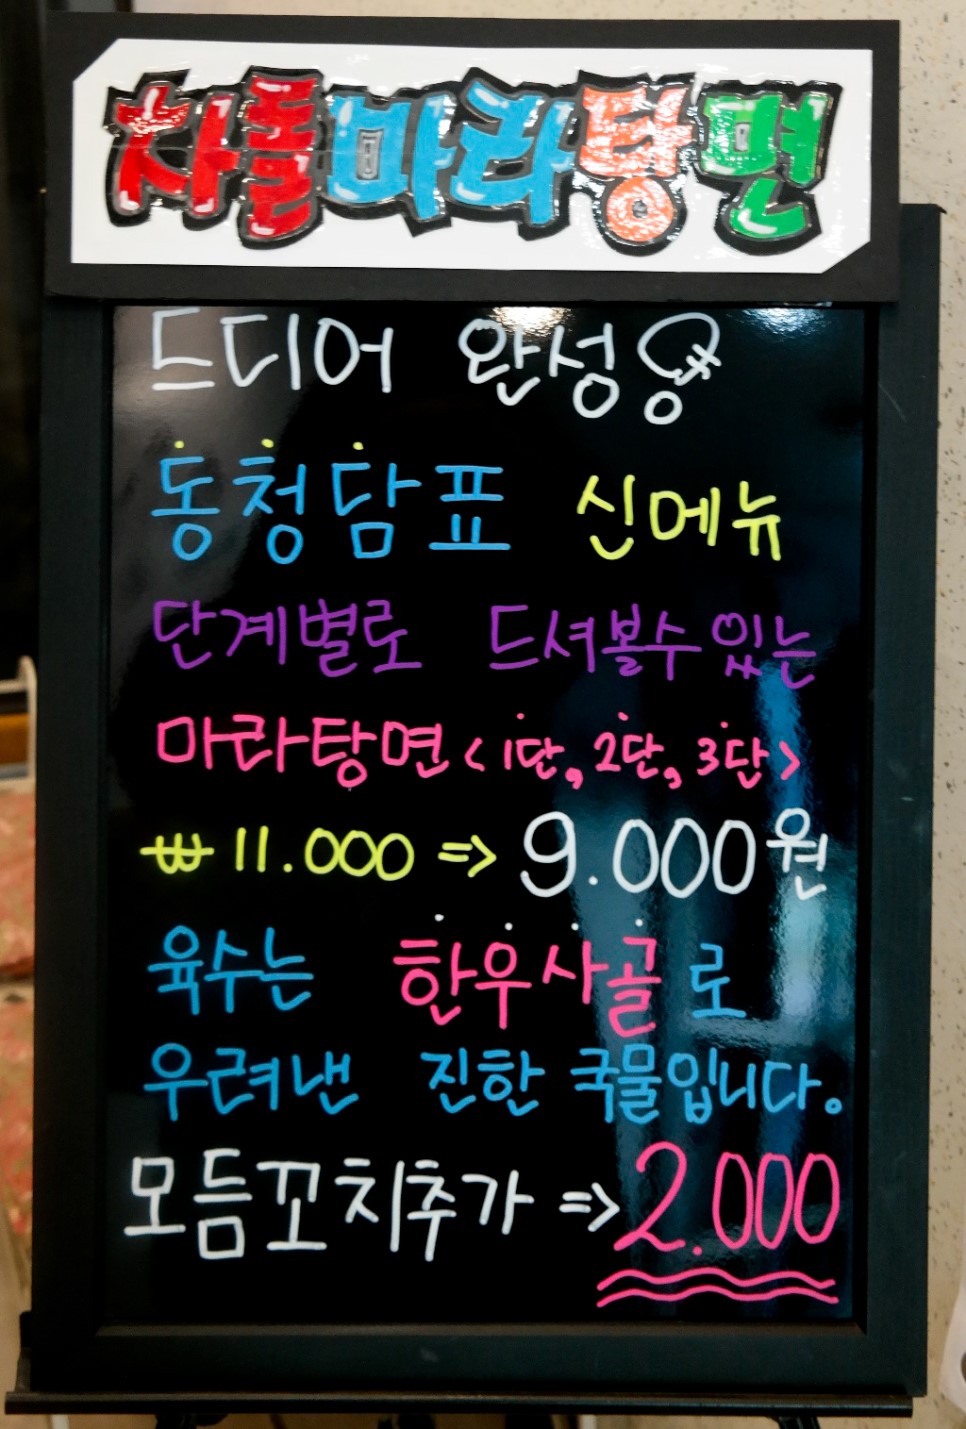 차돌마라탕면
드디어 완성
동청담표 신메뉴
단계별로 드셔볼수있는
마라탕면 <1단, 2단, 3단>
₩11.000 => 9.000원
육수는 한우사골로
우려낸 진한 국물입니다.
모듬꼬치추가 => 2.000